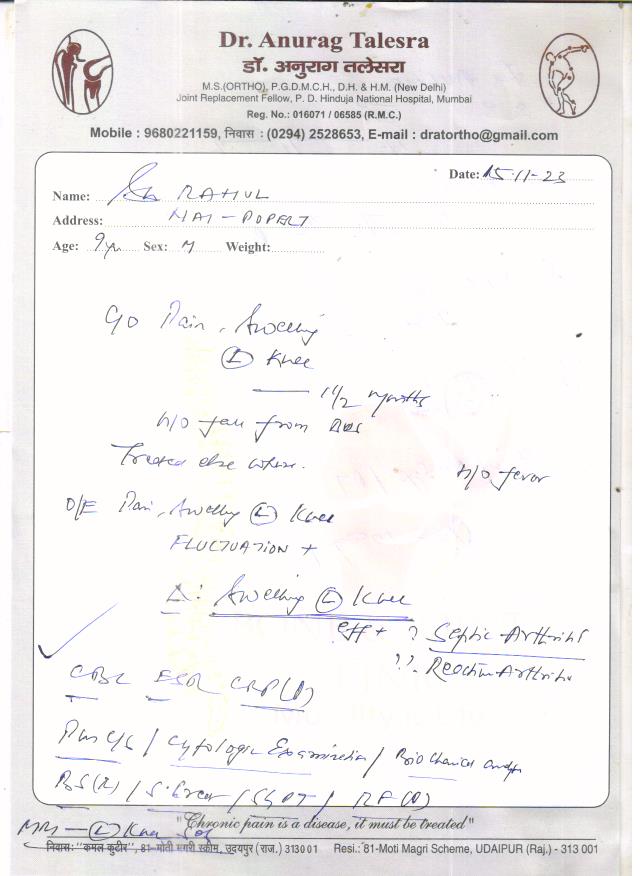 Dr. Anurag Talesra
डॉ. अनुराग तलेसरा
M.S.(ORTHO), P.G.D.M.C.H., D.H. & H.M. (New Delhi)
Joint Replacement Fellow, P. D. Hinduja National Hospital, Mumbai
Reg. No.: 016071 / 06585 (R.M.C.)
Mobile : 9680221159, निवास : (0294) 2528653, E-mail : dratortho@gmail.com
Date: 15-11-23
Name: RAHUL
Address:
Age: 9yr Sex: M Weight:
C/O Pain, Swelling
(L) Knee
1 1/2 months
H/O fall from
Treated else where.
H/O fever
O/E Pain, Swelling (L) Knee
FLUCTUATION +
Δ: Swelling (L) Knee
eff + ? Septic Arthritis
??. Reactive Arthritis
CBC ESR CRP(Q)
Pus C/S / Cytologic Examination / Bio Chemical
BS(R) / S. Creat / SGPT / RF(Q)
MRI — (L) Knee
"Chronic pain is a disease, it must be treated"
निवास: "कमल कुटीर", 81-मोती मगरी स्कीम, उदयपुर (राज.) 313001 Resi.: 81-Moti Magri Scheme, UDAIPUR (Raj.) - 313 001